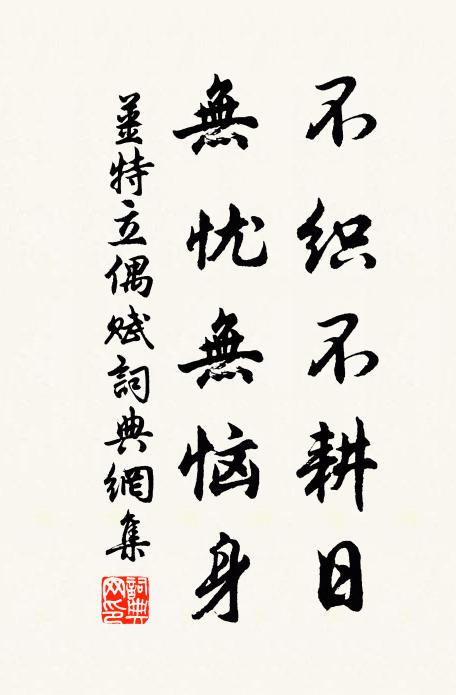 不织不耕日
無忧無恼身
薑特立偶赋詞典網集
詞典网印